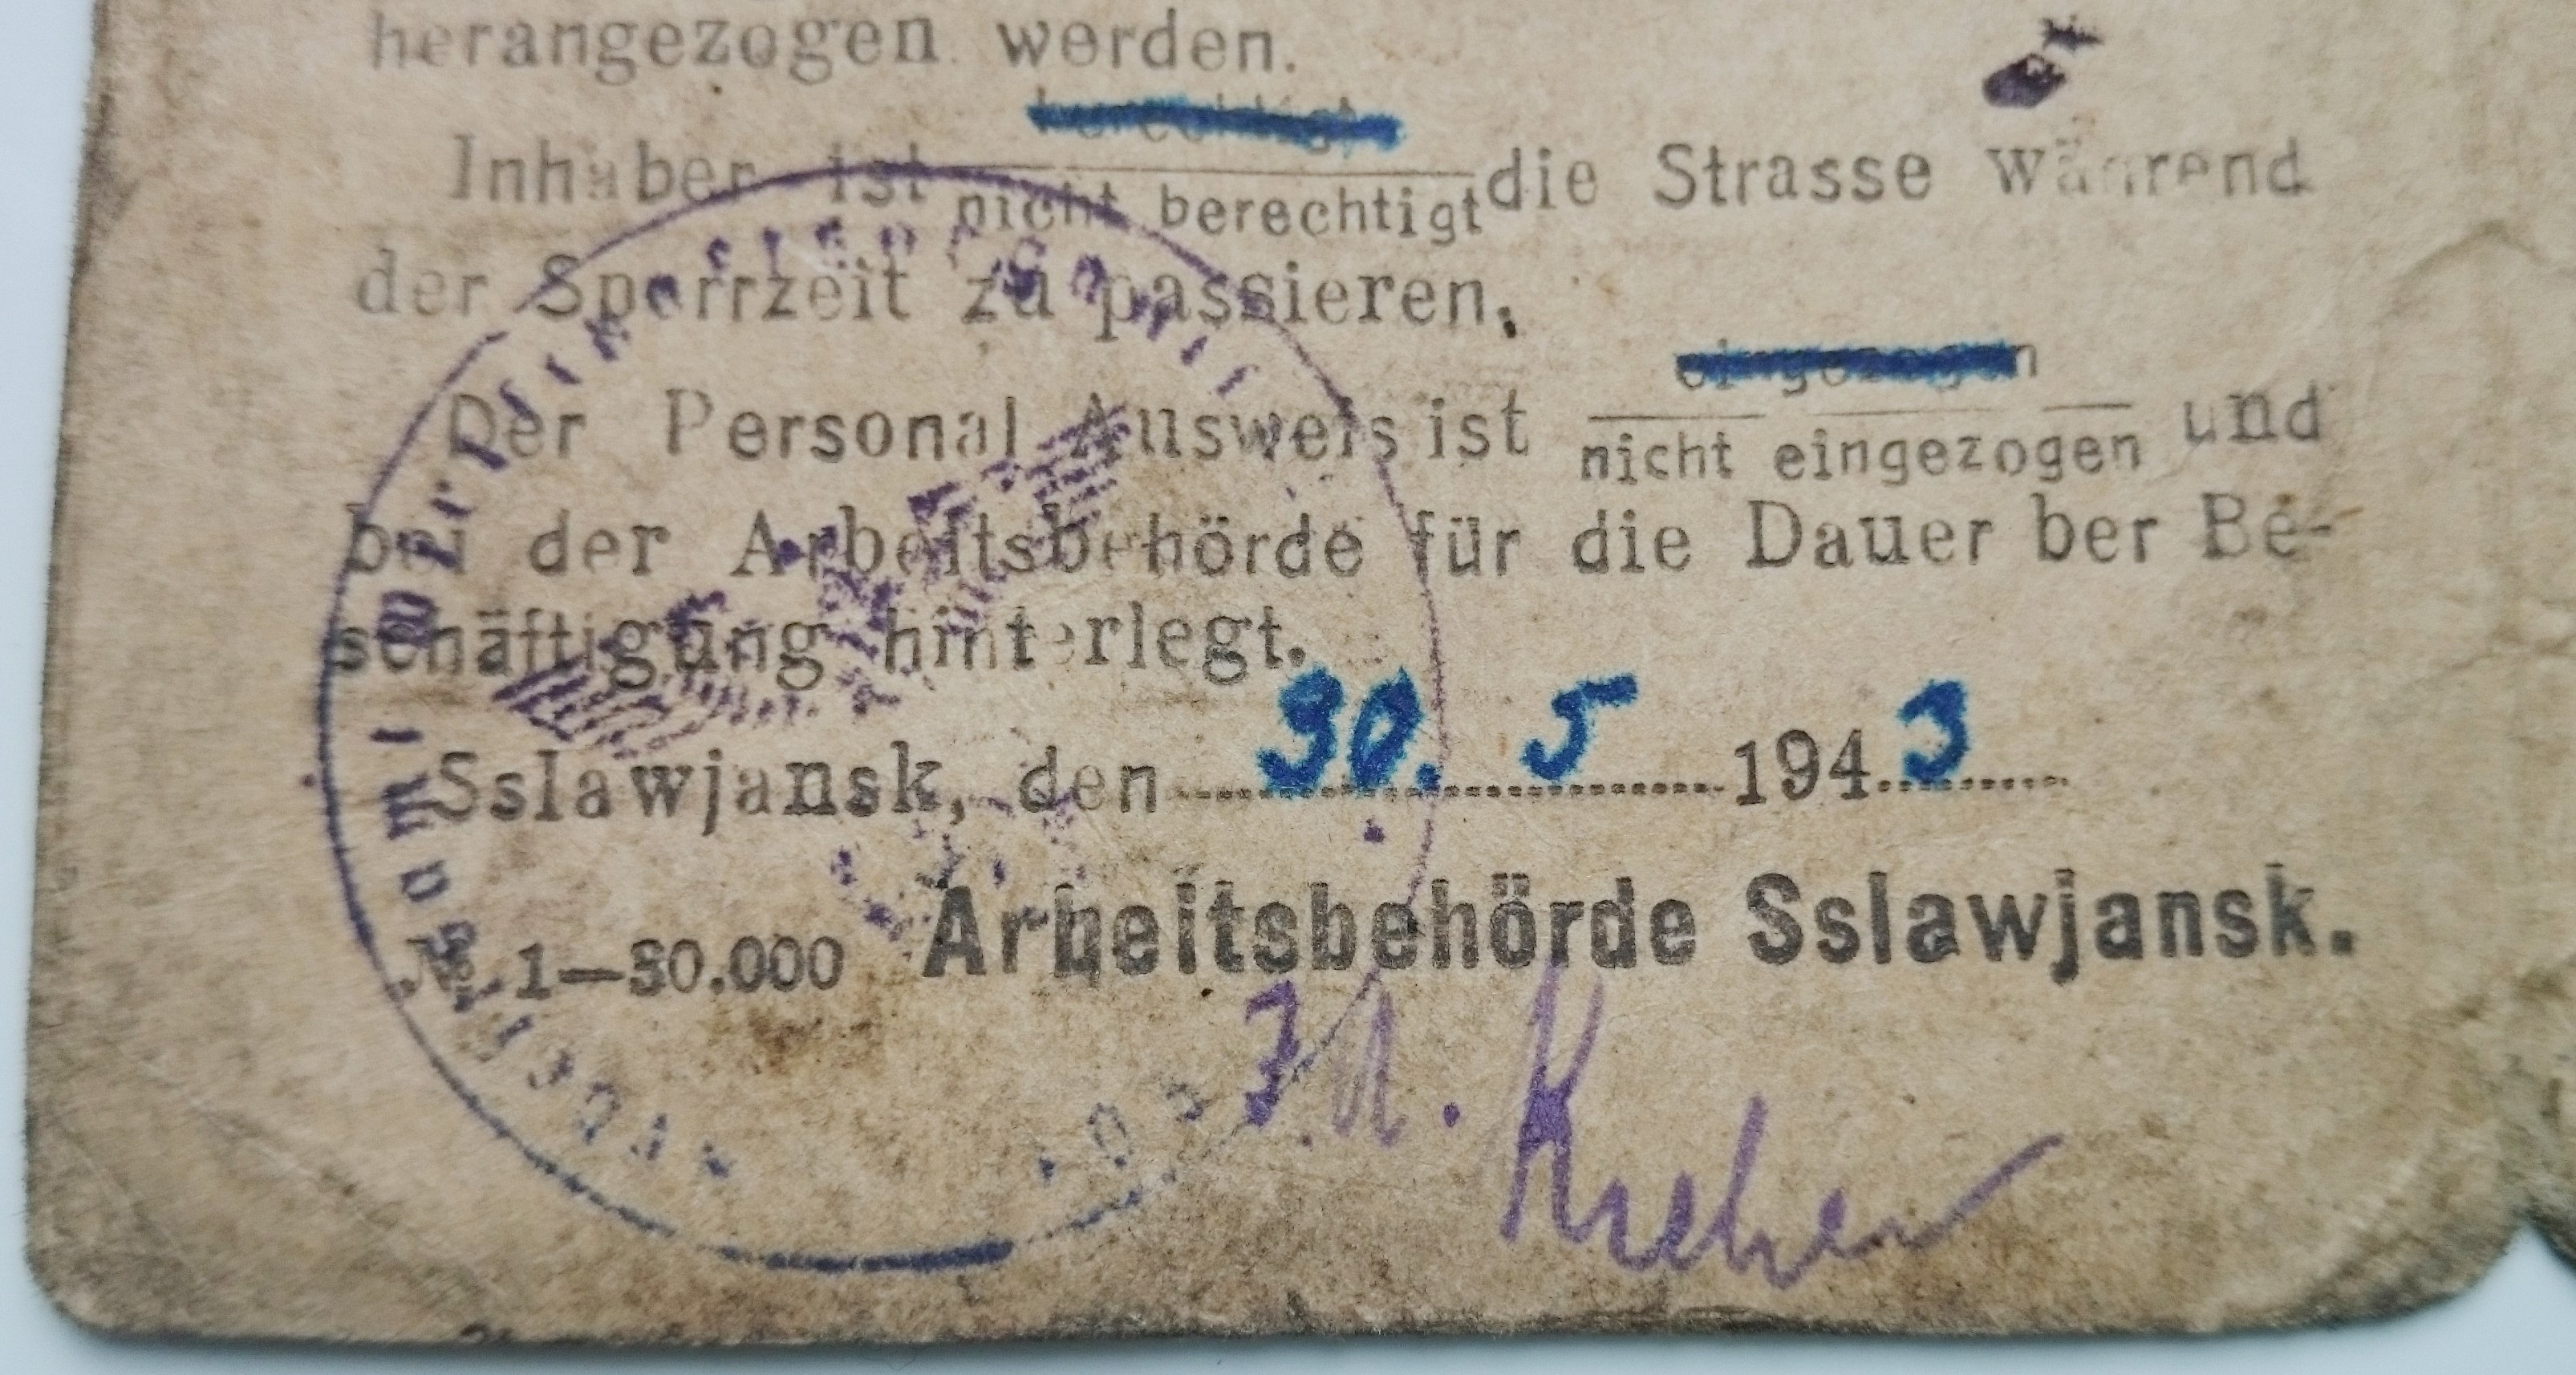 herangezogen werden.
berechtigt
Inhaber ist nicht berechtigt die Strasse während
der Sperrzeit zu passieren.
eingezogen
Der Personal Ausweis ist nicht eingezogen und
bei der Arbeitsbehörde für die Dauer ber Be-
schäftigung hinterlegt.
Sslawjansk, den 30. 5 1943
Arbeitsbehörde Sslawjansk.
№ 1—30.000